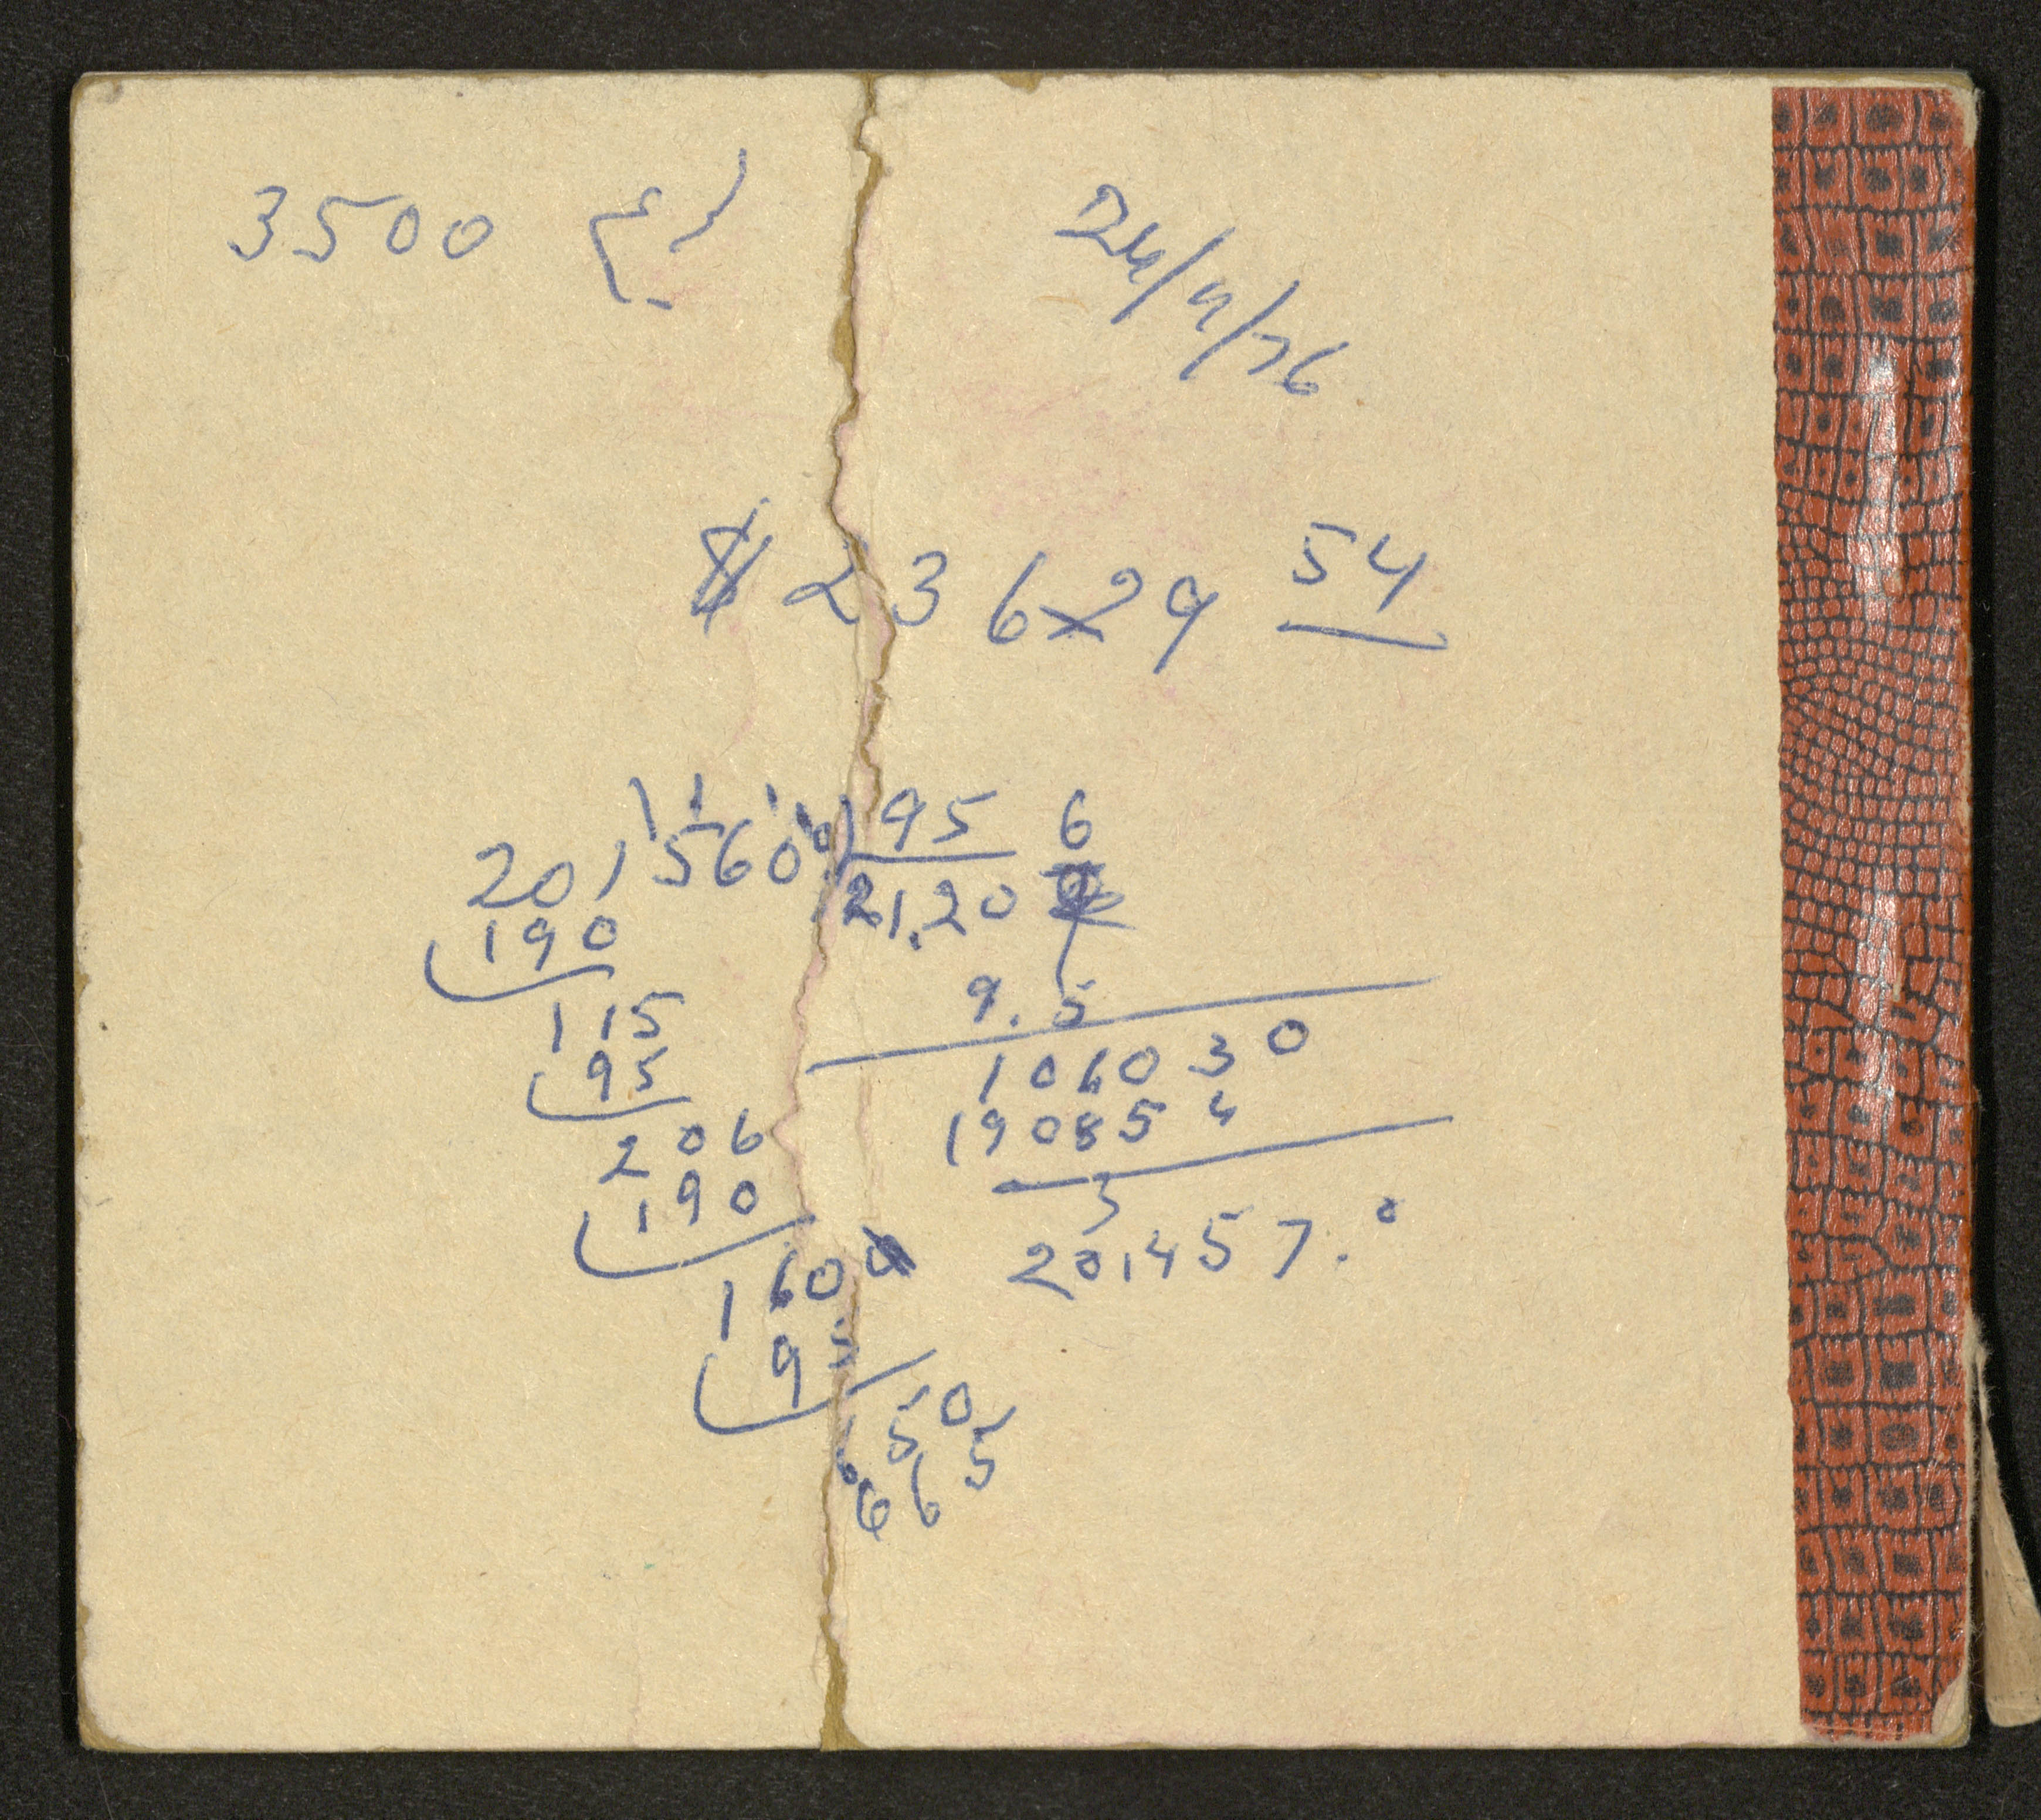 3500
24/4/76
$ 23629 54
2015600 95 6
190 21.20
115 9.5
95 106030
206 190854
190 201457.0
160
95
50
665